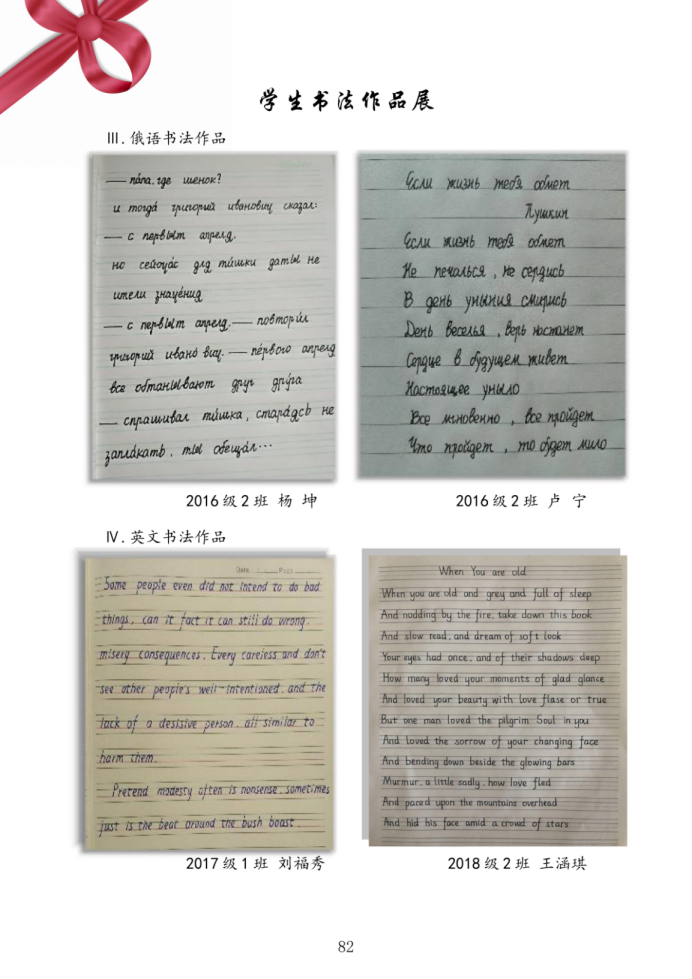 学生书法作品展
III. 俄语书法作品
— пáпа, где щенок?
и тогдá григорий ивáнович сказал:
— с первым апреля.
но сейчáс для ти́шки даты не
имели значéния
— с первым апреля. — повтори́л
григорий иванович. — пéрвого апреля
все обманывают друг дрýга
— спрашивал ти́шка, старáясь не
заплáкать, ты обещáл...
Если жизнь тебя обмет
Пушкин
Если жизнь тебя обмет
Не печалься, не сердись
В день уныния смирись
День веселья, верь настанет
Сердце в будущем живет
Настоящее уныло
Все мгновенно, все пройдет
Что пройдет, то будет мило
2016级2班 杨 坤
2016级2班 卢 宁
IV. 英文书法作品
Date Page
Some people even did not intend to do bad
things, can it fact it can still do wrong.
misery consequences. Every careless and don't
see other people's well-intentioned, and the
lack of a desisive person, all similar to
harm them.
Pretend modesty often is nonsense, sometimes
just is the beat around the bush boast.
When You are old
When you are old and grey and full of sleep
And nodding by the fire, take down this book
And slow read, and dream of soft look
Your eyes had once, and of their shadows deep
How many loved your moments of glad glance
And loved your beauty with love flase or true
But one man loved the pilgrim Soul in you
And loved the sorrow of your changing face
And bending down beside the glowing bars
Murmur, a little sadly, how love fled
And paced upon the mountains overhead
And hid his face amid a crowd of stars
2017级1班 刘福秀
2018级2班 王涵琪
82